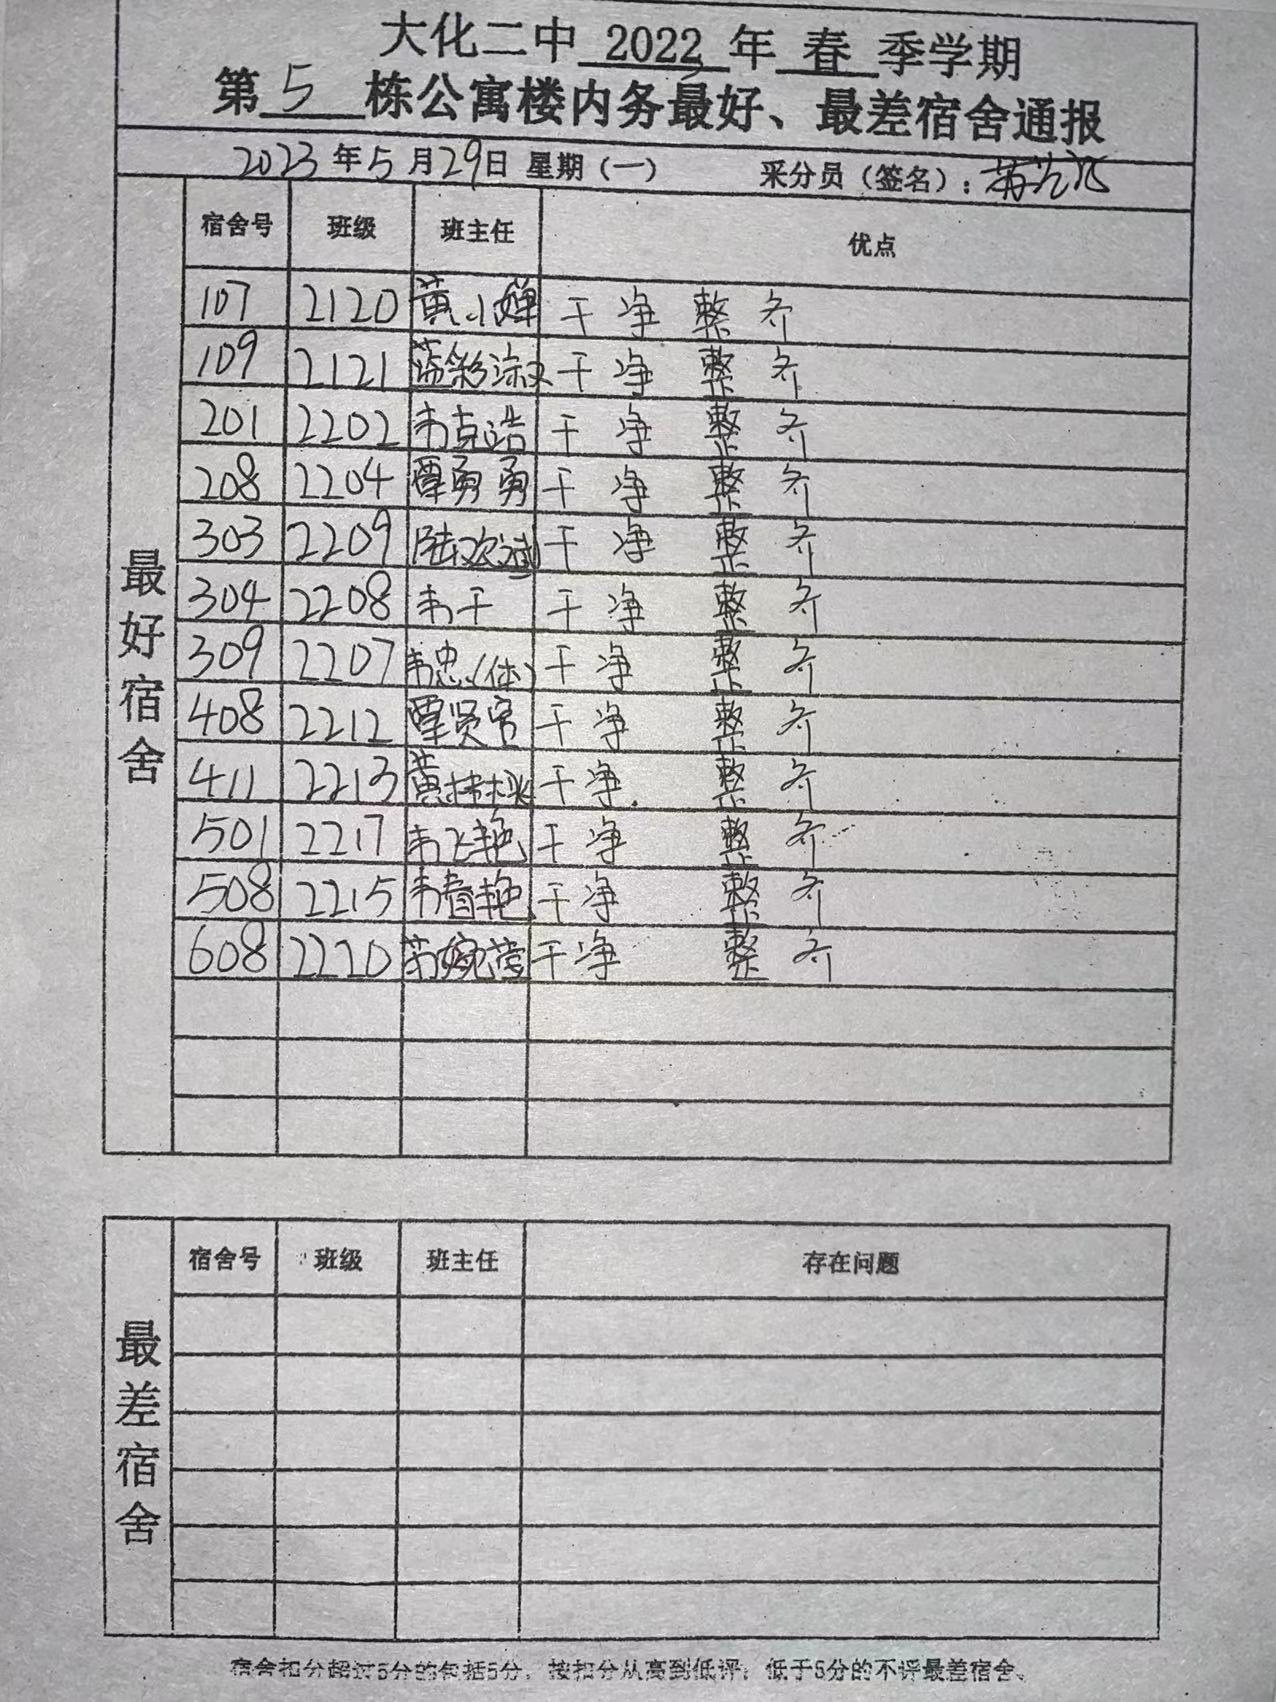 大化二中 2022 年 春 季学期
第 5 栋公寓楼内务最好、最差宿舍通报
2023年5月29日 星期（一） 采分员（签名）：
宿舍号 班级 班主任 优点
最好宿舍
107 2120 黄小婵 干净 整齐
109 2121 蓝彩 干净 整齐
201 2202 韦克浩 干净 整齐
208 2204 覃勇勇 干净 整齐
303 2209 陆欢 干净 整齐
304 2208 韦干 干净 整齐
309 2207 韦忠（体） 干净 整齐
408 2212 覃贤官 干净 整齐
411 2213 黄 干净 整齐
501 2217 韦飞艳 干净 整齐
508 2215 韦春艳 干净 整齐
608 2220 婉莹 干净 整齐
宿舍号 班级 班主任 存在问题
最差宿舍
宿舍扣分超过5分的包括5分，按扣分从高到低评；低于5分的不评最差宿舍。